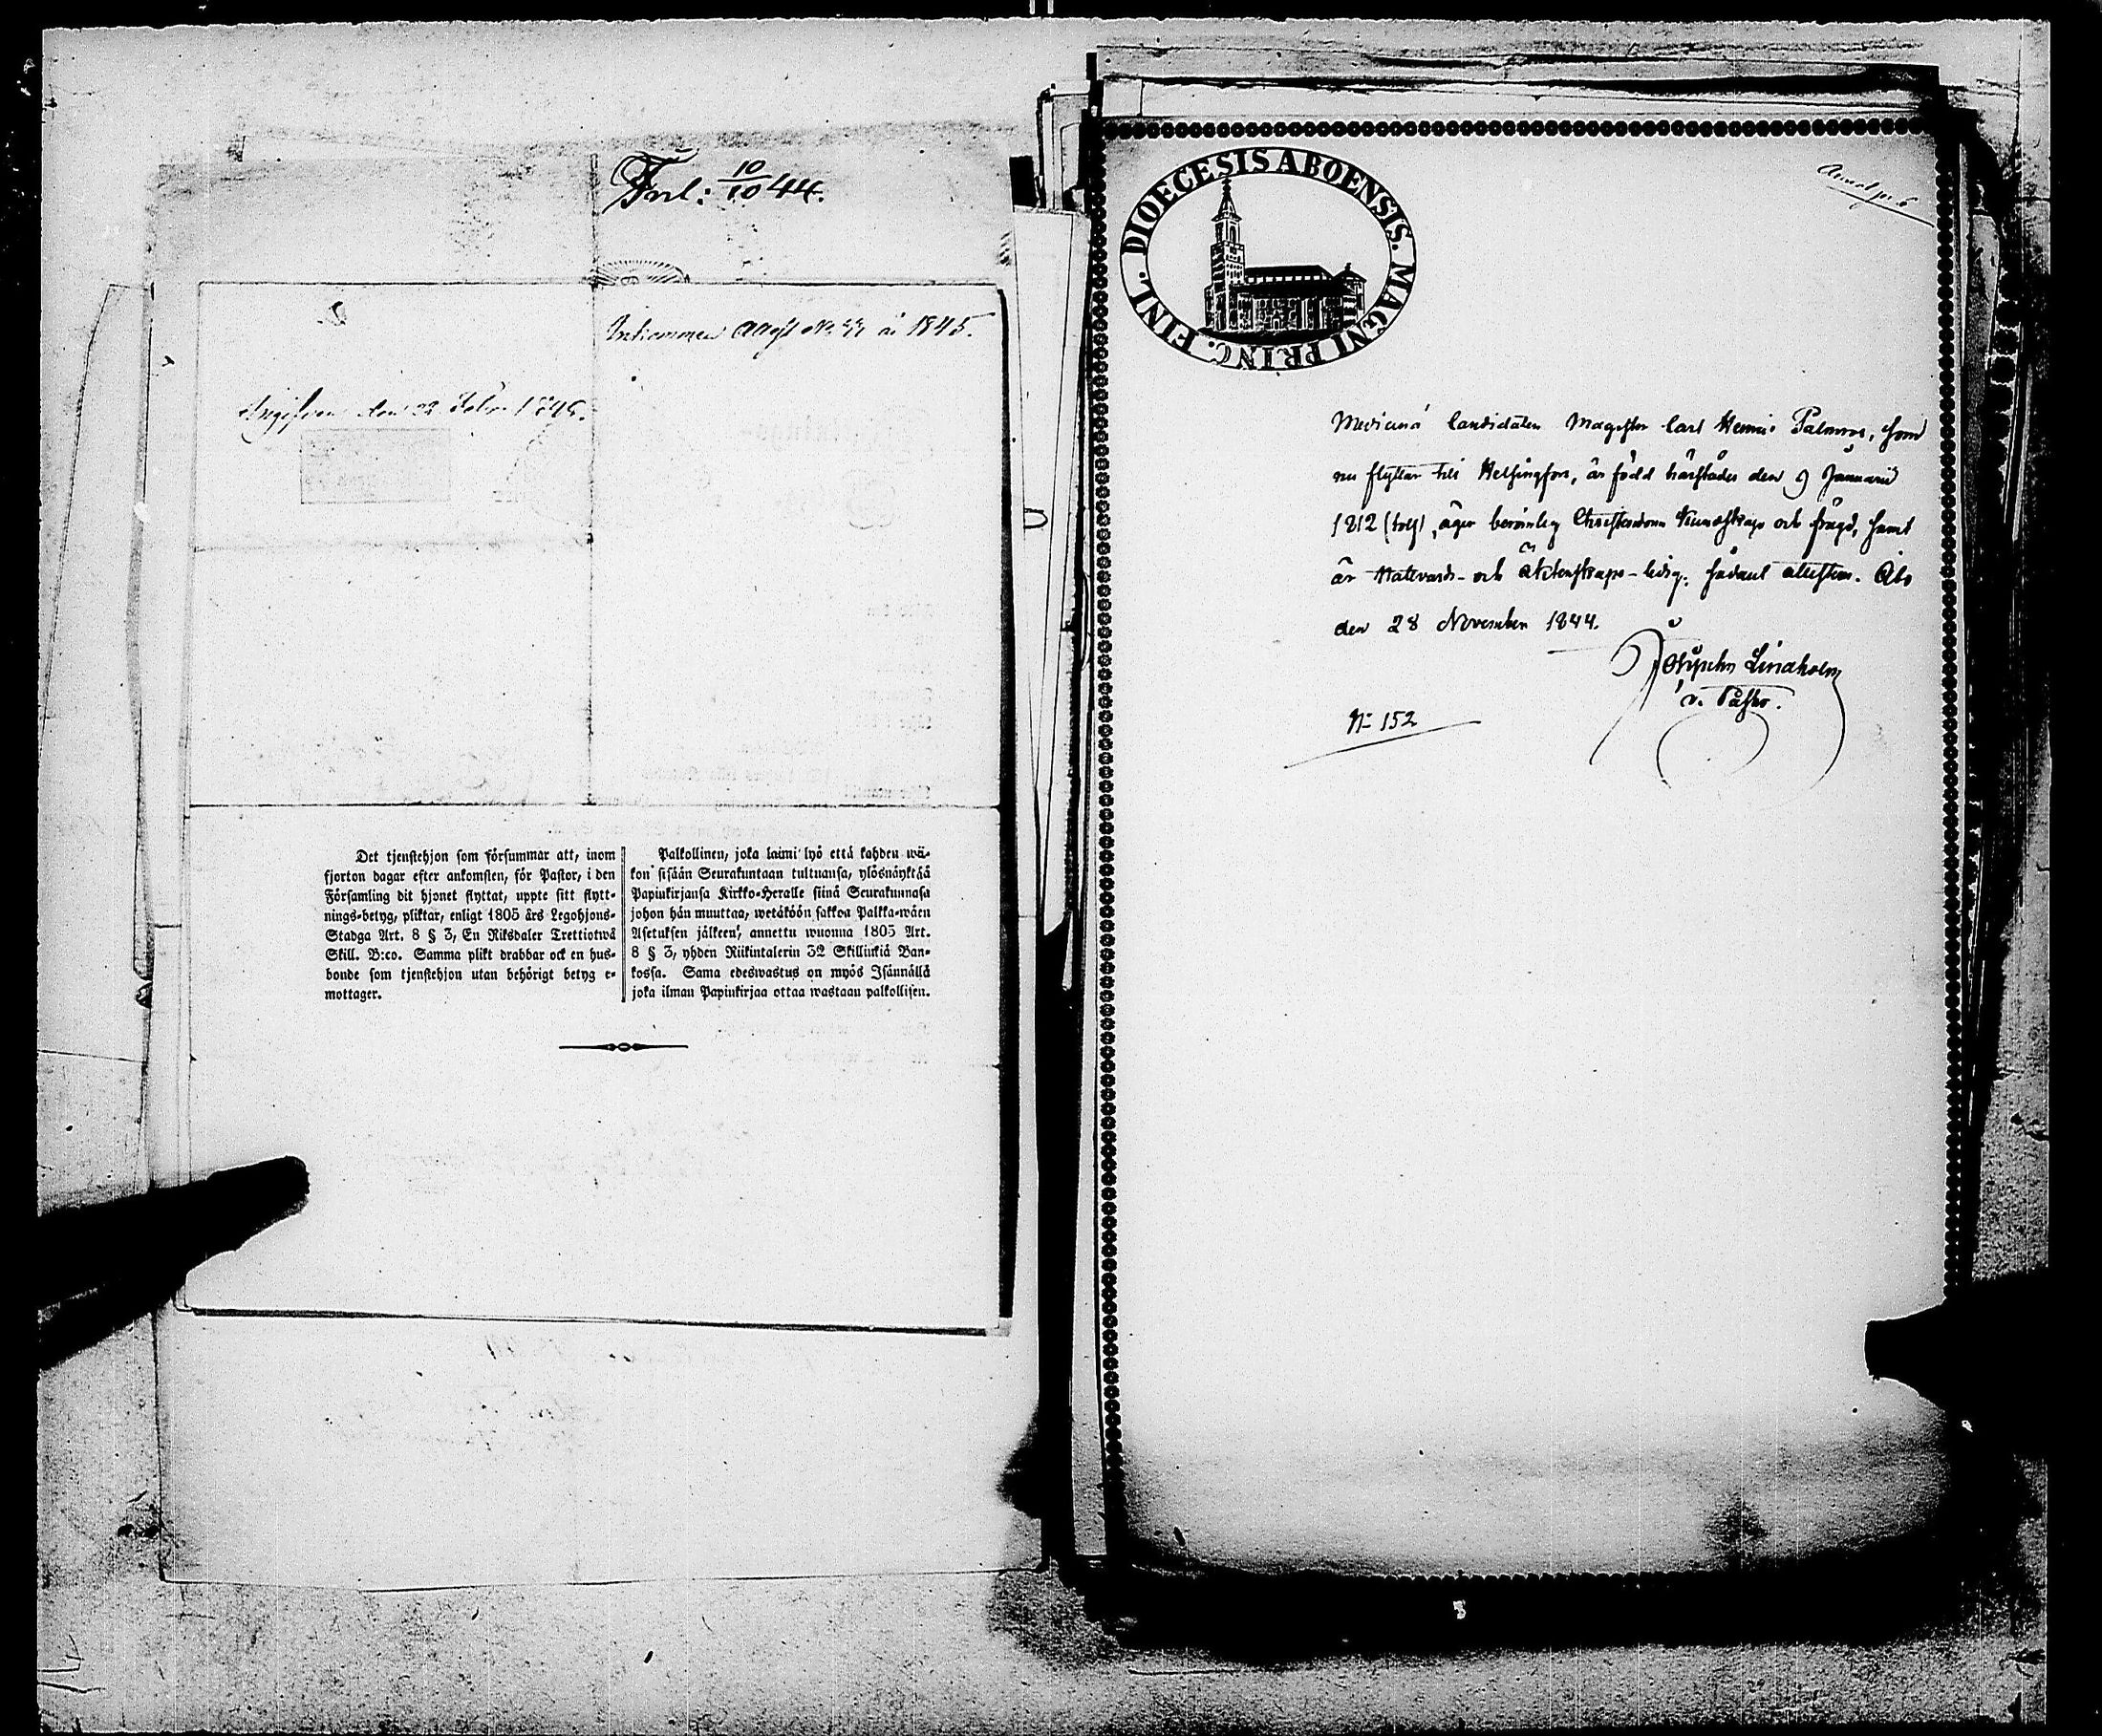 Förl: 10/10 44.
Inkommen Attest No 44 år 1845.
Ingifven den 22 Febr. 1845.
Det tjenstehjon som försummar att, inom
fjorton dagar efter ankomsten, för Pastor, i den
Församling dit hjonet flyttat, uppte sitt flytt-
nings-betyg, pliktar, enligt 1805 års Legohjons-
Stadga Art. 8 § 3, En Riksdaler Trettiotwå
Skill. B:co. Samma plikt drabbar ock en hus-
bonde som tjenstehjon utan behörigt betyg e-
mottager.
Palkollinen, joka laimi lyö että kahden wii-
kon sisään Seurakuntaan tultuansa, ylösnäyktää
Papinkirjansa Kirkko-Heralle siinä Seurakunnasa
johon hän muuttaa, wetäköön sakkoa Palkka-wäen
Asetuksen jälkeen, annettu wuonna 1805 Art.
8 § 3, yhden Riikintalerin 32 Skillinkiä Ban-
kossa. Sama edeswastus on myös Isännällä
joka ilman Papinkirjaa ottaa wastaan palkollisen.
DIOECESIS ABOENSIS. MAGNI PRINC. FINL.
Medicinæ Candidaten Magister Carl Henric Palmros, som
nu flyttar till Helsingfors, är född härstädes den 9 Januarii
1812 (tolf), äger berömlig Christendoms Kunskap och frägd, samt
är Nattvards- och Äktenskaps-ledig; sådant attesteras. Åbo
den 28 November 1844.
Lindholm
v. Pastor.
No 152